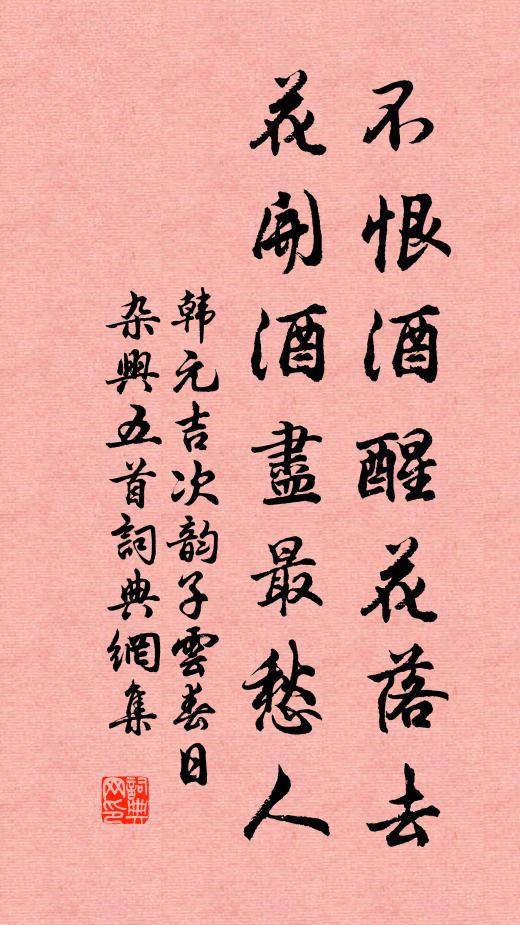 不恨酒醒花落去
花開酒盡最愁人
韩元吉次韵子雲春日
杂興五首詞典網集
詞典
网印